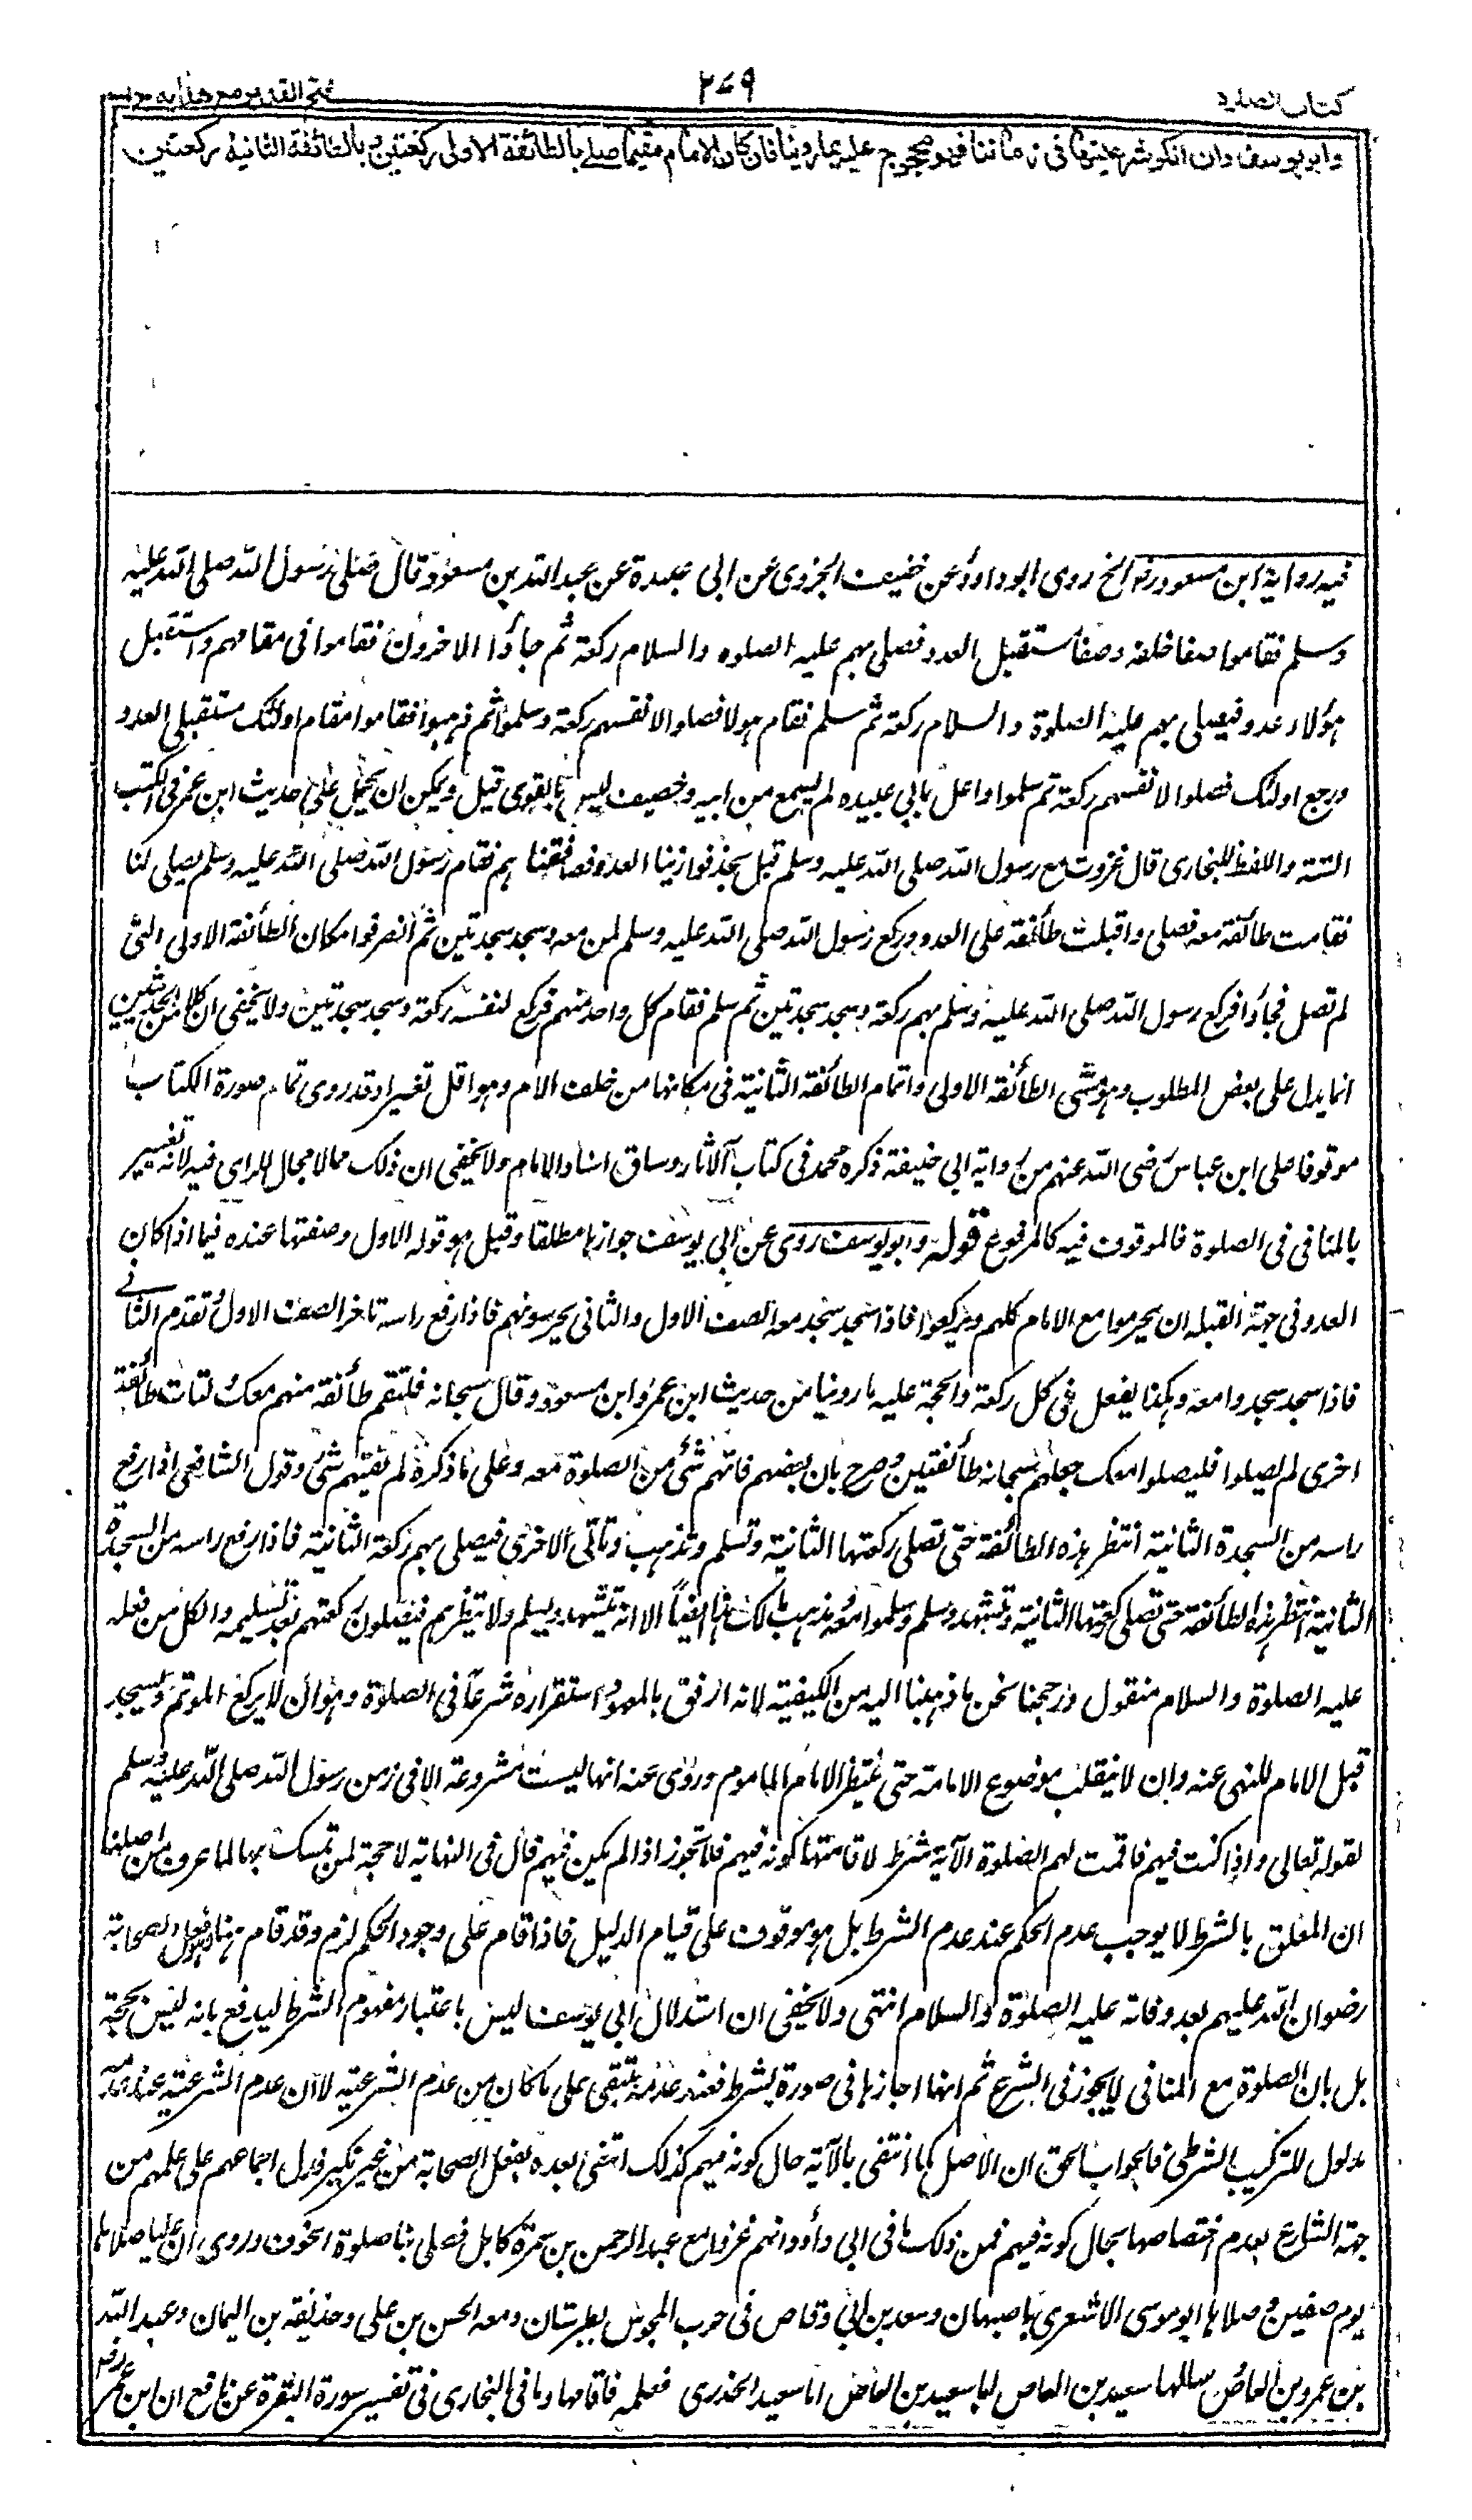 كتاب الصلوة
٢٧٩
فتح القدير مع هداية
وابو يوسف وان انكر شرعيتها فى زماننا فهو محجوج عليه بما روينا فان كان الامام مقيما صلے بالطائفة الاولى ركعتين وبالطائفة الثانية ركعتين
فيه رواية ابن مسعود رض الخ روى ابو داود عن خصيف الجزرى عن ابى عبيدة عن عبد الله بن مسعود قال صلى رسول الله صلى الله عليه
وسلم فقاموا صفا خلفه وصفا مستقبل العدو فصلى بهم عليه الصلوه والسلام ركعة ثم جاؤا الاخرون فقاموا فى مقامهم واستقبل
هؤلاء عدو فيصلى بهم عليه الصلوة والسلام ركعة ثم سلم فقام هولا فصلوا لانفسهم ركعة وسلموا ثم ذهبوا فقاموا مقام اولئك مستقبلى العدو
ورجع اولئك فصلوا لانفسهم ركعة ثم سلموا واعل بابى عبيده لم يسمع من ابيه وخصيف ليس بالقوى قيل ويمكن ان يحمل على حديث ابن عمر فى الكتب
الستة واللفظ للبخارى قال غزوت مع رسول الله صلى الله عليه وسلم قبل نجد فوازينا العدو فصاففنا هم فقام رسول الله صلى الله عليه وسلم يصلى لنا
فقامت طائفة معه فصلى واقبلت طائفة على العدو وركع رسول الله صلى الله عليه وسلم لمن معه وسجد سجدتين ثم انصرفوا مكان الطائفة الاولى التى
لم تصل فجاؤا فركع رسول الله صلى الله عليه وسلم بهم ركعة وسجد سجدتين ثم سلم فقام كل واحد منهم فركع لنفسه ركعة وسجد سجدتين ولا يخفى ان كلا من الحديثين
انما يدل على بعض المطلوب وهو مشى الطائفة الاولى واتمام الطائفة الثانية فى مكانها من خلف الامام وهو اقل تغييرا وقد روى تمام صورة الكتاب
موقوفا على ابن عباس رضى الله عنهم من رواية ابى حنيفة ذكره محمد فى كتاب الآثار وساق اسناد الامام ولا يخفى ان ذلك مما لا مجال للراى فيه لانه تغيير
بالمنافى فى الصلوة فالموقوف فيه كالمرفوع قوله وابو يوسف روى عن ابى يوسف جوازها مطلقا وقيل هو قوله الاول وصفتها عنده فيما اذا كان
العدو فى جهة القبلة ان يحرموا مع الامام كلهم ويركعوا فاذا سجد سجد معه الصف الاول والثانى يحرسونهم فاذا رفع راسه تاخر الصف الاول وتقدم الثانے
فاذا سجد سجدوا معه وهكذا يفعل فى كل ركعة والحجة عليه ما روينا من حديث ابن عمر وابن مسعود وقال سبحانه فلتقم طائفة منهم معك ولتات طائفة
اخرى لم يصلوا فليصلوا معك جعلهم سبحانه طائفتين وصرح بان بعضهم فاتهم شئ من الصلوة معه وعلى ما ذكره لم يفتهم شئ وقول الشافعى اذا رفع
راسه من السجدة الثانية انتظر هذه الطائفة حتى تصلى ركعتها الثانية وتسلم وتذهب وتاتى الاخرى فيصلى بهم ركعة الثانية فاذا رفع راسه من السجدة
الثانية انتظر هذه الطائفة حتى تصلى ركعتها الثانية وتشهد وسلم وسلموا معه مذهب مالك هذا ايضا الا انه يتشهد ويسلم ولا ينتظرهم فيصلون ركعتهم بعد تسليمه والكل من فعله
عليه الصلوة والسلام منقول ورجحنا نحن ما ذهبنا اليه من الكيفية لانه اوفق بالمعهود استقراره شرعا فى الصلوة وهو ان لا يركع الموتم ويسجد
قبل الامام للنهى عنه وان لا ينقلب موضوع الامامة حتى ينتظر الامام الماموم وروى عنه انها ليست مشروعة الا فى زمن رسول الله صلى الله عليه وسلم
لقوله تعالى واذا كنت فيهم فاقمت لهم الصلوة الآية شرط لاقامتها كونه فيهم فلا تجوز اذا لم يكن فيهم قال فى النهاية لا حجة لمن تمسك بها لما عرف من اصلنا
ان المعلق بالشرط لا يوجب عدم الحكم عند عدم الشرط بل هو موقوف على قيام الدليل فاذا قام على وجود الحكم لزم وقد قام هنا وهو فعل الصحابة
رضوان الله عليهم بعد وفاته عليه الصلوة والسلام انتهى ولا يخفى ان استدلال ابى يوسف ليس باعتبار مفهوم الشرط ليدفع بانه ليس بحجة
بل بان الصلوة مع المنافى لا يجوز فى الشرع ثم انها اجازها فى صورة بشرط فعند عدمه يتبقى على ما كان من عدم الشرعية لا ان عدم الشرعية عند عدمه
مدلول للتركيب الشرطى فالجواب الحق ان الاصل كما انتفى بالآية حال كونه فيهم كذلك انتفى بعده بفعل الصحابة من غير نكير فدل اجماعهم على علمهم من
جهة الشارع بعدم اختصاصها بحال كونه فيهم فمن ذلك ما فى ابى داؤد انهم غزوا مع عبد الرحمن بن سمرة كابل فصلى بنا صلوة الخوف وروى ان عليا صلاها
يوم صفين وصلاها ابو موسى الاشعرى باصبهان وسعد بن ابى وقاص فى حرب المجوس بطبرستان ومعه الحسن بن على وحذيفة بن اليمان وعبد الله
بن عمرو بن العاص وسالها سعيد بن العاص ابا سعيد الخدرى فعلمه فاقامها وما فى البخارى فى تفسير سورة البقرة عن نافع ان ابن عمر رض